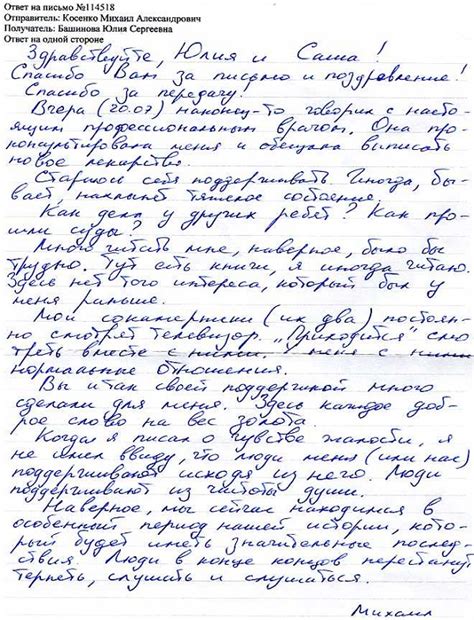 Ответ на письмо №114518
Отправитель: Косенко Михаил Александрович
Получатель: Башинова Юлия Сергеевна
Ответ на одной стороне
Здравствуйте, Юлия и Саша!
Спасибо Вам за письмо и поздравление!
Спасибо за передачу.
Вчера (20.07) наконец-то говорил с насто-
ящим профессиональным врачом. Она про-
консультировала меня и обещала выписать
новое лекарство.
Стараюсь себя поддерживать. Иногда, бы-
вает, нахлынет тяжелое состояние.
Как дела у других ребят? Как про-
шли суды?
Много читать мне, наверное, было бы
трудно. Тут есть книги, я иногда читаю.
Здесь нет того интереса, который был у
меня раньше.
Мои сокамерники (их два) постоян-
но смотрят телевизор. "Приходится" смо
треть вместе с ними. У меня с ними
нормальные отношения.
Вы и так своей поддержкой много
сделали для меня. Здесь каждое доб-
рое слово на вес золота.
Когда я писал о чувстве жалости, я
не имел ввиду, что люди меня (или нас)
поддерживают исходя из него. Люди
поддерживают из чистоты души.
Наверное, мы сейчас находимся в
особенный период нашей истории, кото-
рый будет иметь значительные послед-
ствия. Люди в конце концов перестанут
терпеть, слушать и слушаться.
Михаил